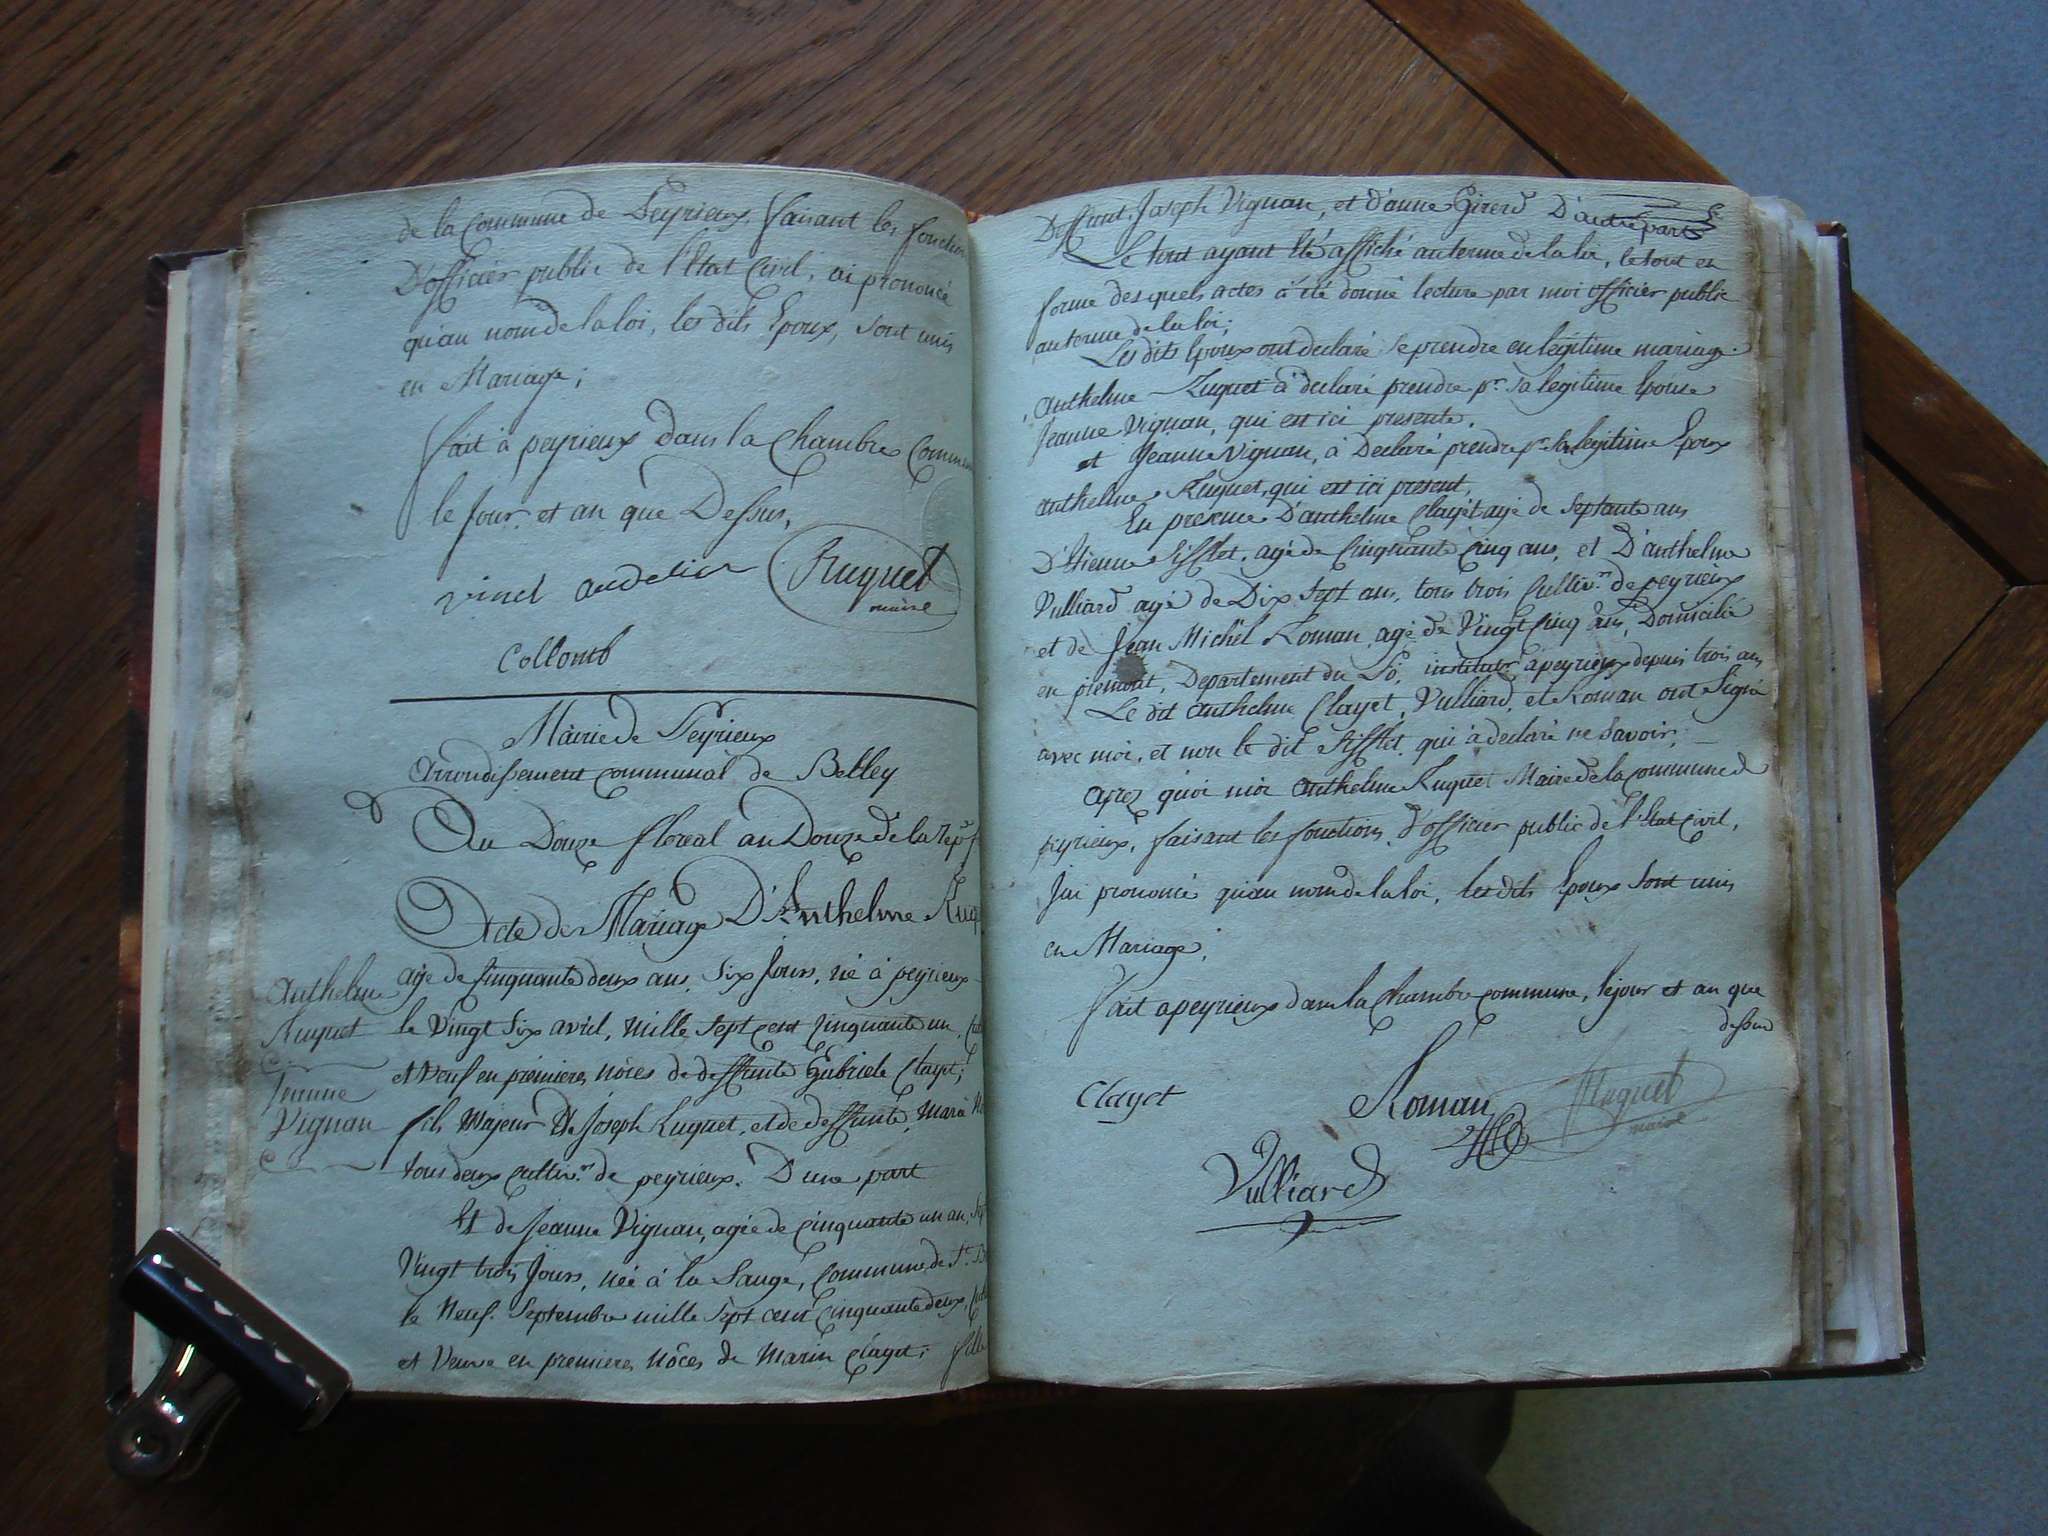 de la Commune de Peyrieux, faisant les fonction
D'officier public de l'Etat Civil, ai prononcé
qu'au nom de la loi, les dits Epoux, sont unis
en Mariage;
fait à peyrieux dans la Chambre Commune
le Jour et an que Dessus,
Ruquet
maire
Collomb
Mairie de Peyrieux
Arrondissement communal de Belley
Du Douze floréal an Douze de la rep.
Acte de Mariage D'Anthelme Ruq
agé de Cinquante deux ans, six Jours, né à peyrieux
le Vingt six avril, mille sept cent Cinquante un,
et Veuf en premieres nôces de deffunte Gabriele Clayet;
fils majeur de Joseph Ruquet, et de deffunte, Marie
tous deux cultiv.rs de peyrieux. D'une part
Et de Jeanne Vignan, agée de cinquante un an,
Vingt trois Jours, née à la Sauge, Commune de St.
le Neuf Septembre mille sept cent Cinquante deux,
et Veuve en premieres Nôces de Marin Clayet; fille
Anthelme
Ruquet
Jeanne
Vignan
Deffunt Joseph Vignan, et d'anne Girerd D'autre part
Le tout ayant été affiché au terme de la loi, le tout en
forme des quels actes à été donné lecture par moi officier public
au terme de la loi;
Les dits Epoux ont declaré se prendre en légitime mariage.
Anthelme Ruquet à declaré prendre pr. sa legitime Epouse
Jeanne Vignan, qui est ici presente,
et Jeanne Vignan, à Declaré prendre pr. legitime Epoux
anthelme Ruquet, qui est ici present,
En presence D'anthelme Clayet agé de septante ans
D'Etienne Sifflet, agé de Cinquante Cinq ans, et D'anthelme
Vulliard agé de Dix sept ans, tous trois Cultiv.rs de peyrieux
et de Jean Michel Roman, agé de Vingt Cinq ans, Domicilié
en piemont, Departement du Pô, institutr. à peyrieux depuis trois ans
Le dit Anthelme Clayet, Vulliard, et Roman ont Signé
avec moi, et non le dit Sifflet, qui à declaré ne savoir;
Après quoi moi Anthelme Ruquet Maire de la commune de
peyrieux, faisant les fonctions d'officier public de l'Etat Civil,
J'ai prononcé qu'au nom de la loi, les dits Epoux sont unis
en Mariage;
Fait a peyrieux dans la Chambre commune, le jour et an que
dessus
Clayet
Roman
Ruquet
maire
Vulliard